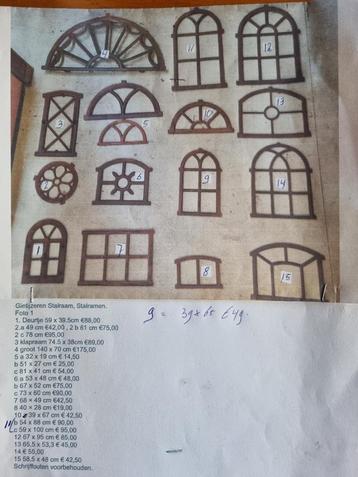 4
11
12
3
5
10
13
2
6
9
14
1
7
8
15
Gietijzeren Stalraam, Stalramen.
Foto 1
1. Deurtje 59 x 39.5cm €88,00
2.a 49 cm €42,00 , 2 b 61 cm €75,00
2 c 78 cm €95,00
3 klapraam 74.5 x 38cm €89,00
4 groot 140 x 70 cm €175,00
5 a 32 x 19 cm € 14,50
b 51 x 27 cm € 25,00
c 81 x 41 cm € 54,00
6 a 53 x 48 cm € 48,00
b 67 x 52 cm €75,00
c 73 x 60 cm €90,00
7 68 x 49 cm €42,50
8 40 x 28 cm €19,00
10 39 x 67 cm € 42,50
11/ b 54 x 88 cm € 90,00
c 59 x 100 cm € 95,00
12 67 x 95 cm € 85,00
13 65,5 x 53,3 € 45,00
14 € 55,00
15 58,5 x 48 cm € 42,50
Schrijffouten voorbehouden.
9 = 39 x 65 €49,-